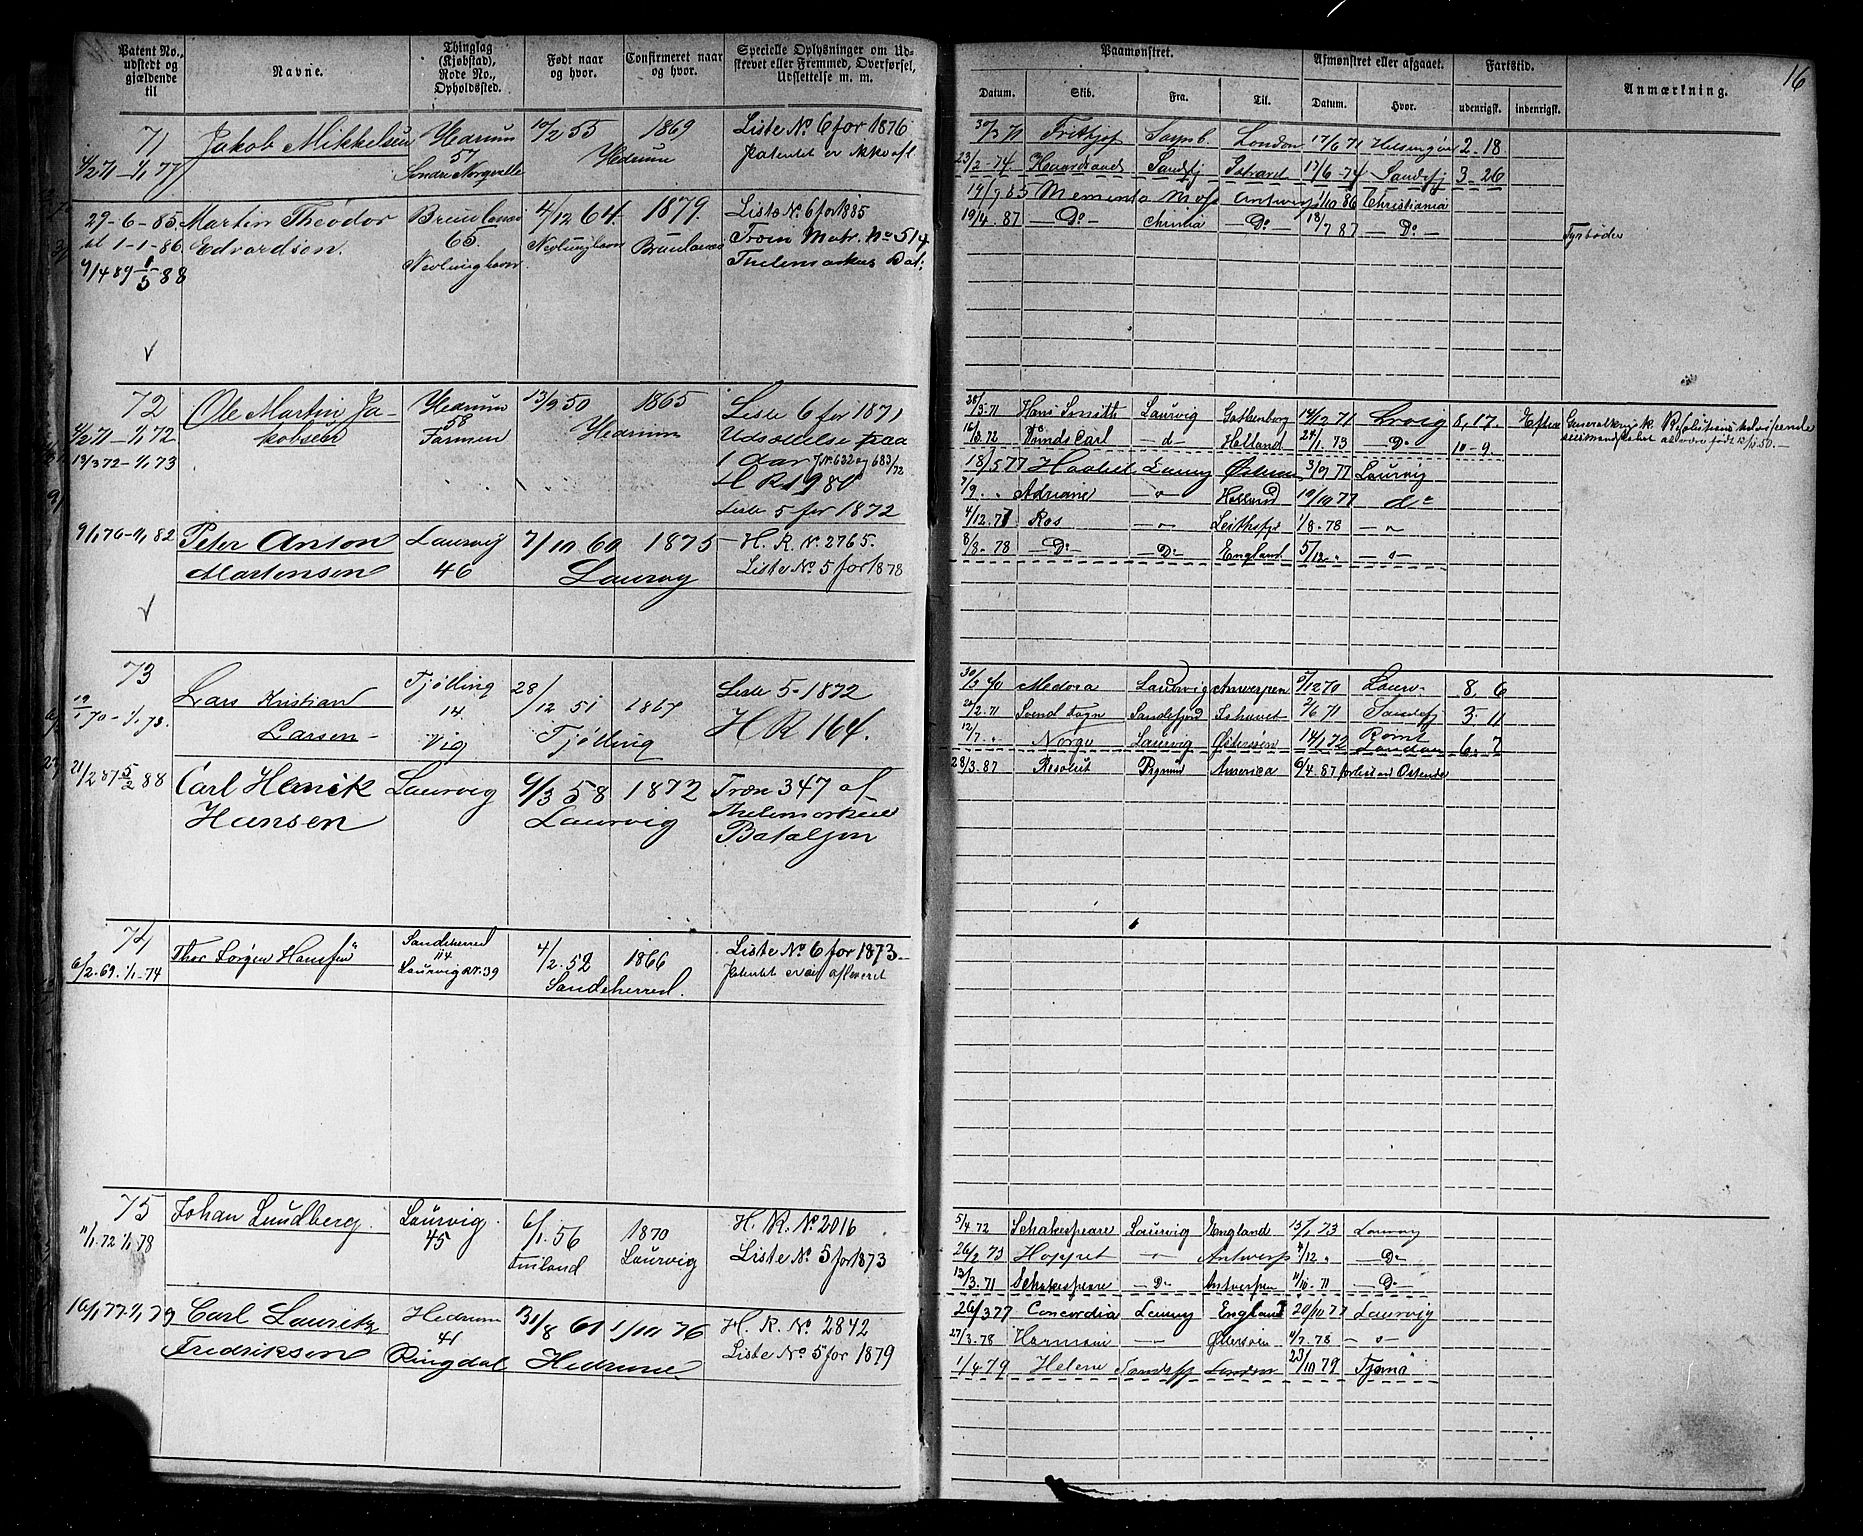 16
Patent No., udstedt og gjældende til
Navne.
Thinglag (Kjøbstad), Rode No., Opholdssted.
Født naar og hvor.
Confirmeret naar og hvor.
Specielle Oplysninger om Udskrevet eller Fremmed, Overførsel, Udsættelse m. m.
Paamønstret.
Afmønstret eller afgaaet.
Fartstid.
Anmærkning.
Datum.
Skib.
Fra.
Til.
Datum.
Hvor.
udenrigsk.
indenrigsk.
71
4/2 71 – 1/1 77
Jakob Mikkelsen
Hedrum
57
10/2 55
Hedrum
1869
Liste No 6 for 1876
Patentet er ikke afl.
30/3 71 Fritkjof London 17/6 71 Helsingør 2 - 18
23/2 - 74 Sandefj 17/6 - 74 Sandefj 3 - 26
29-6-85
til 1-1-86
Martin Theodor
Edvardsen.
Brunlanes
65.
Nevlunghavn
4/12 64.
Nevlunghavn
1879.
Brunlanes
Liste No. 6 for 1885
Troin Matr. No 514
Thelemarkens Bat:
14/7 85 Memento Moss Antwerp 1/10 86 Christiania
19/4 87 – Do – Chr:nia – Do – 13/7 87 – Do –
Fyrbøder
72
4/2 71 – 1/1 72
13/3 72 – 1/1 73
Ole Martin Ja-
kobsen
Hedrum
58
Farmen
13/9 50
Hedrum
1865
Liste 6 for 1871
Udsættelse paa
1 Aar J.No 632 og 683/72
H R 1980
Liste 5 for 1872
28/3 71 Hans Smith Laurvig Gothenborg 14/12 71 Lrvig 8, 17.
16/3 72 Carl – d – Holland 24/1 73 – Do – 10 - 9
Efter Generalkrigsk. Resolution
9/1 76 – 1/1 82
Peter Anton
Martensen
Laurvig
46
7/10 60
Laurvig
1875
H. R. No. 2765.
Liste No 5 for 1878
18/5 77 Laurvig 3/9 77 Laurvig
7/9 . Adriane – " Holland 10/10 77 do
4/12 77 Ros – " – 1/8 - 78 – " –
8/8 - 78 – Do – – Do – England 5/12 . – " –
73
19/1 70 – 1/1 73.
Lars Kristian
Larsen –
Tjølling
14.
Vig
28/12 51
Tjølling
1867
Liste 5 - 1872
H R 164.
30/3 70 Medora Laurvig Antwerpen 5/12 70 Laurv. 8, 6
20/2 71 Svend Fogn Sandefjord Ishavet 2/6 71 Sandefj 3 - 11
12/7 . Norge Laurvig Østersøen 14/1 72 London 6 - 7
21/2 87 5/2 88
Carl Henrik
Hansen
Laurvig
9/3 58
Laurvig
1872
Træn 347 af
Thelemarkens
Bataljon
28/3. 87 Resolut Pgrund America 6/4. 87 forlist ved Ostende
74
6/2. 69. 1/1 - 74
Thor Sørgen Hanssen
Sandeherred
114
Laurvig R.T. 39
4/2. 52
Sandeherred.
1866
Liste No 6 for 1873 –
Patentet er ei afleveret
75
11/1 72 1/1 78
Johan Lundberg.
Laurvig.
45
6/1. 56
Finland
1870
Laurvig
H. R. No 2016
Liste No 5 for 1873
5/4 72 Schakespeare Laurvig England 13/1 73 Laurvig
26/2 73 Hoppet – " – Antwerp 4/12 . – Do –
13/3. 71 Schakespeare – Do – Antverpen 11/10. 71 – Do –
16/1 77 – 1/1 79
Carl Lauritz
Fredriksen
Hedrum
41
Ringdal
31/8 61
Hedrum
1/10 76
H. R. No 2842
Liste No 5 for 1879
26/3 77 Concordia Laurvig England 20/10 77 Laurvig
27/3. 78 Harmoni – " – Østersøen 9/7. 78 – " –
1/4. 79 Helene Sandefj London 23/10 79 Tjømø